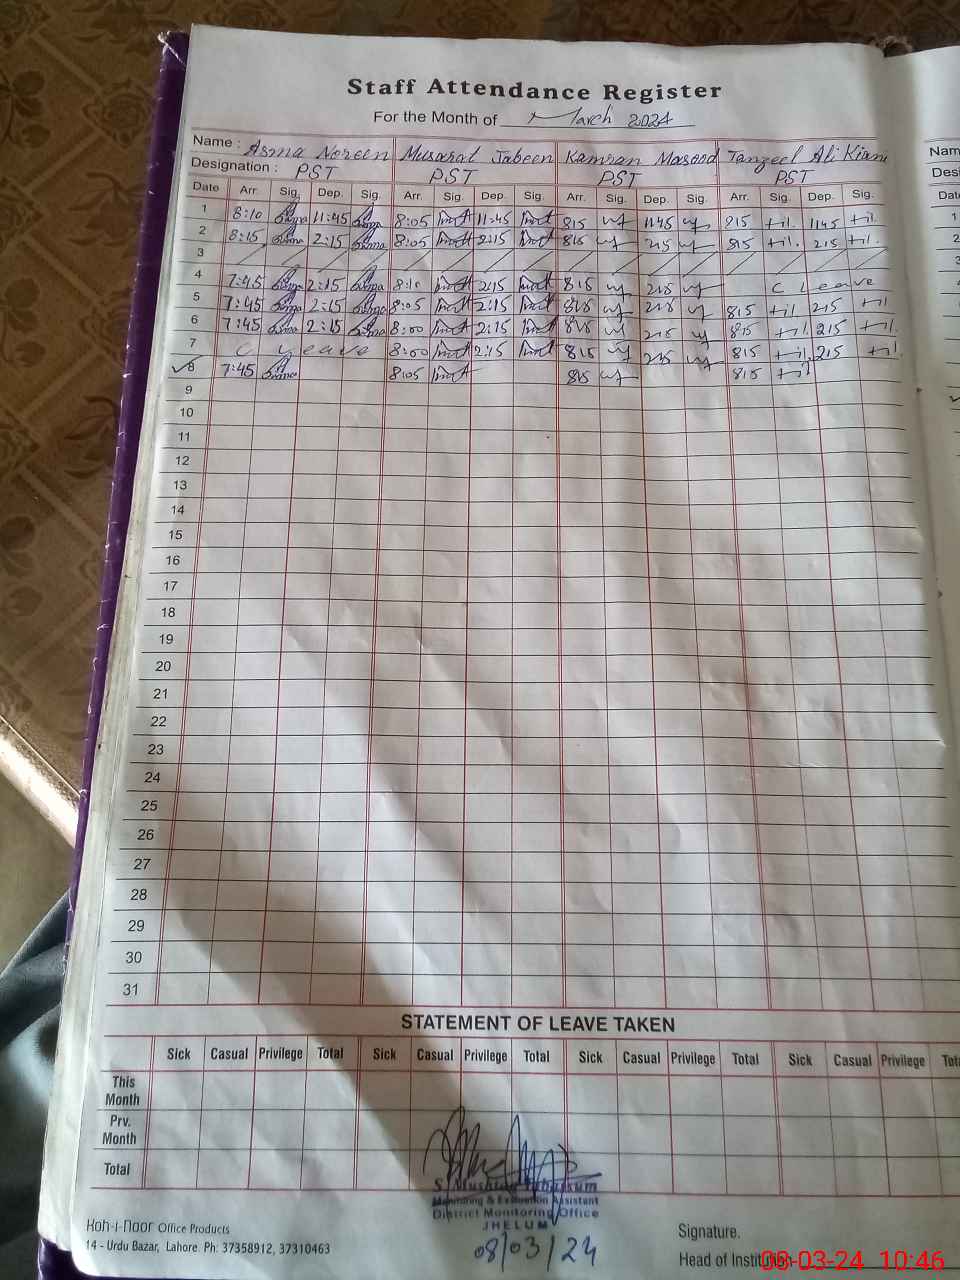 Staff Attendance Register
For the Month of March 2024
Name : Asma Noreen Musarat Jabeen Kamran Masood Tanzeel Ali Kiani Nam
Designation : PST PST PST PST Desi
Date Arr. Sig. Dep. Sig. Arr. Sig. Dep. Sig. Arr. Sig. Dep. Sig. Arr. Sig. Dep. Sig. Dat
1 8:10 11:45 8:05 11:45 815 1145 815 1145 1
2 8:15 2:15 8:05 2:15 815 215 815 215 2
3
4 7:45 2:15 8:10 2:15 815 215 C Leave
5 7:45 2:15 8:05 2:15 815 215 815 215
6 7:45 2:15 8:00 2:15 815 215 815 215
7 C Leave 8:00 2:15 815 215 815 215
8 7:45 8:05 815 815
9
10
11
12
13
14
15
16
17
18
19
20
21
22
23
24
25
26
27
28
29
30
31
STATEMENT OF LEAVE TAKEN
Sick Casual Privilege Total Sick Casual Privilege Total Sick Casual Privilege Total Sick Casual Privilege Tot
This
Month
Prv.
Month
Total
Monitoring & Evaluation Assistant
District Monitoring Office
JHELUM
08/03/24
Koh-i-noor Office Products
14 - Urdu Bazar, Lahore. Ph: 37358912, 37310463
Signature.
Head of Institution
08-03-24 10:46